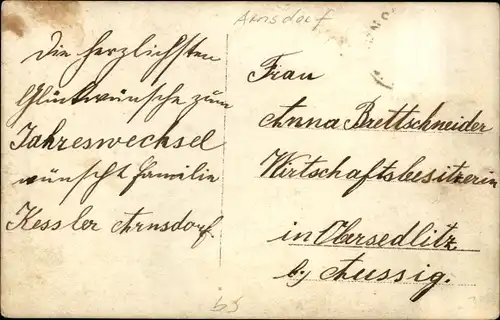 Arnsdorf
Die herzlichsten
Glückwünsche zum
Jahreswechsel
wünscht Familie
Kessler Arnsdorf.
Frau
Anna Brettschneider
Wirtschaftsbesitzerin
in Obersedlitz
b/ Aussig.